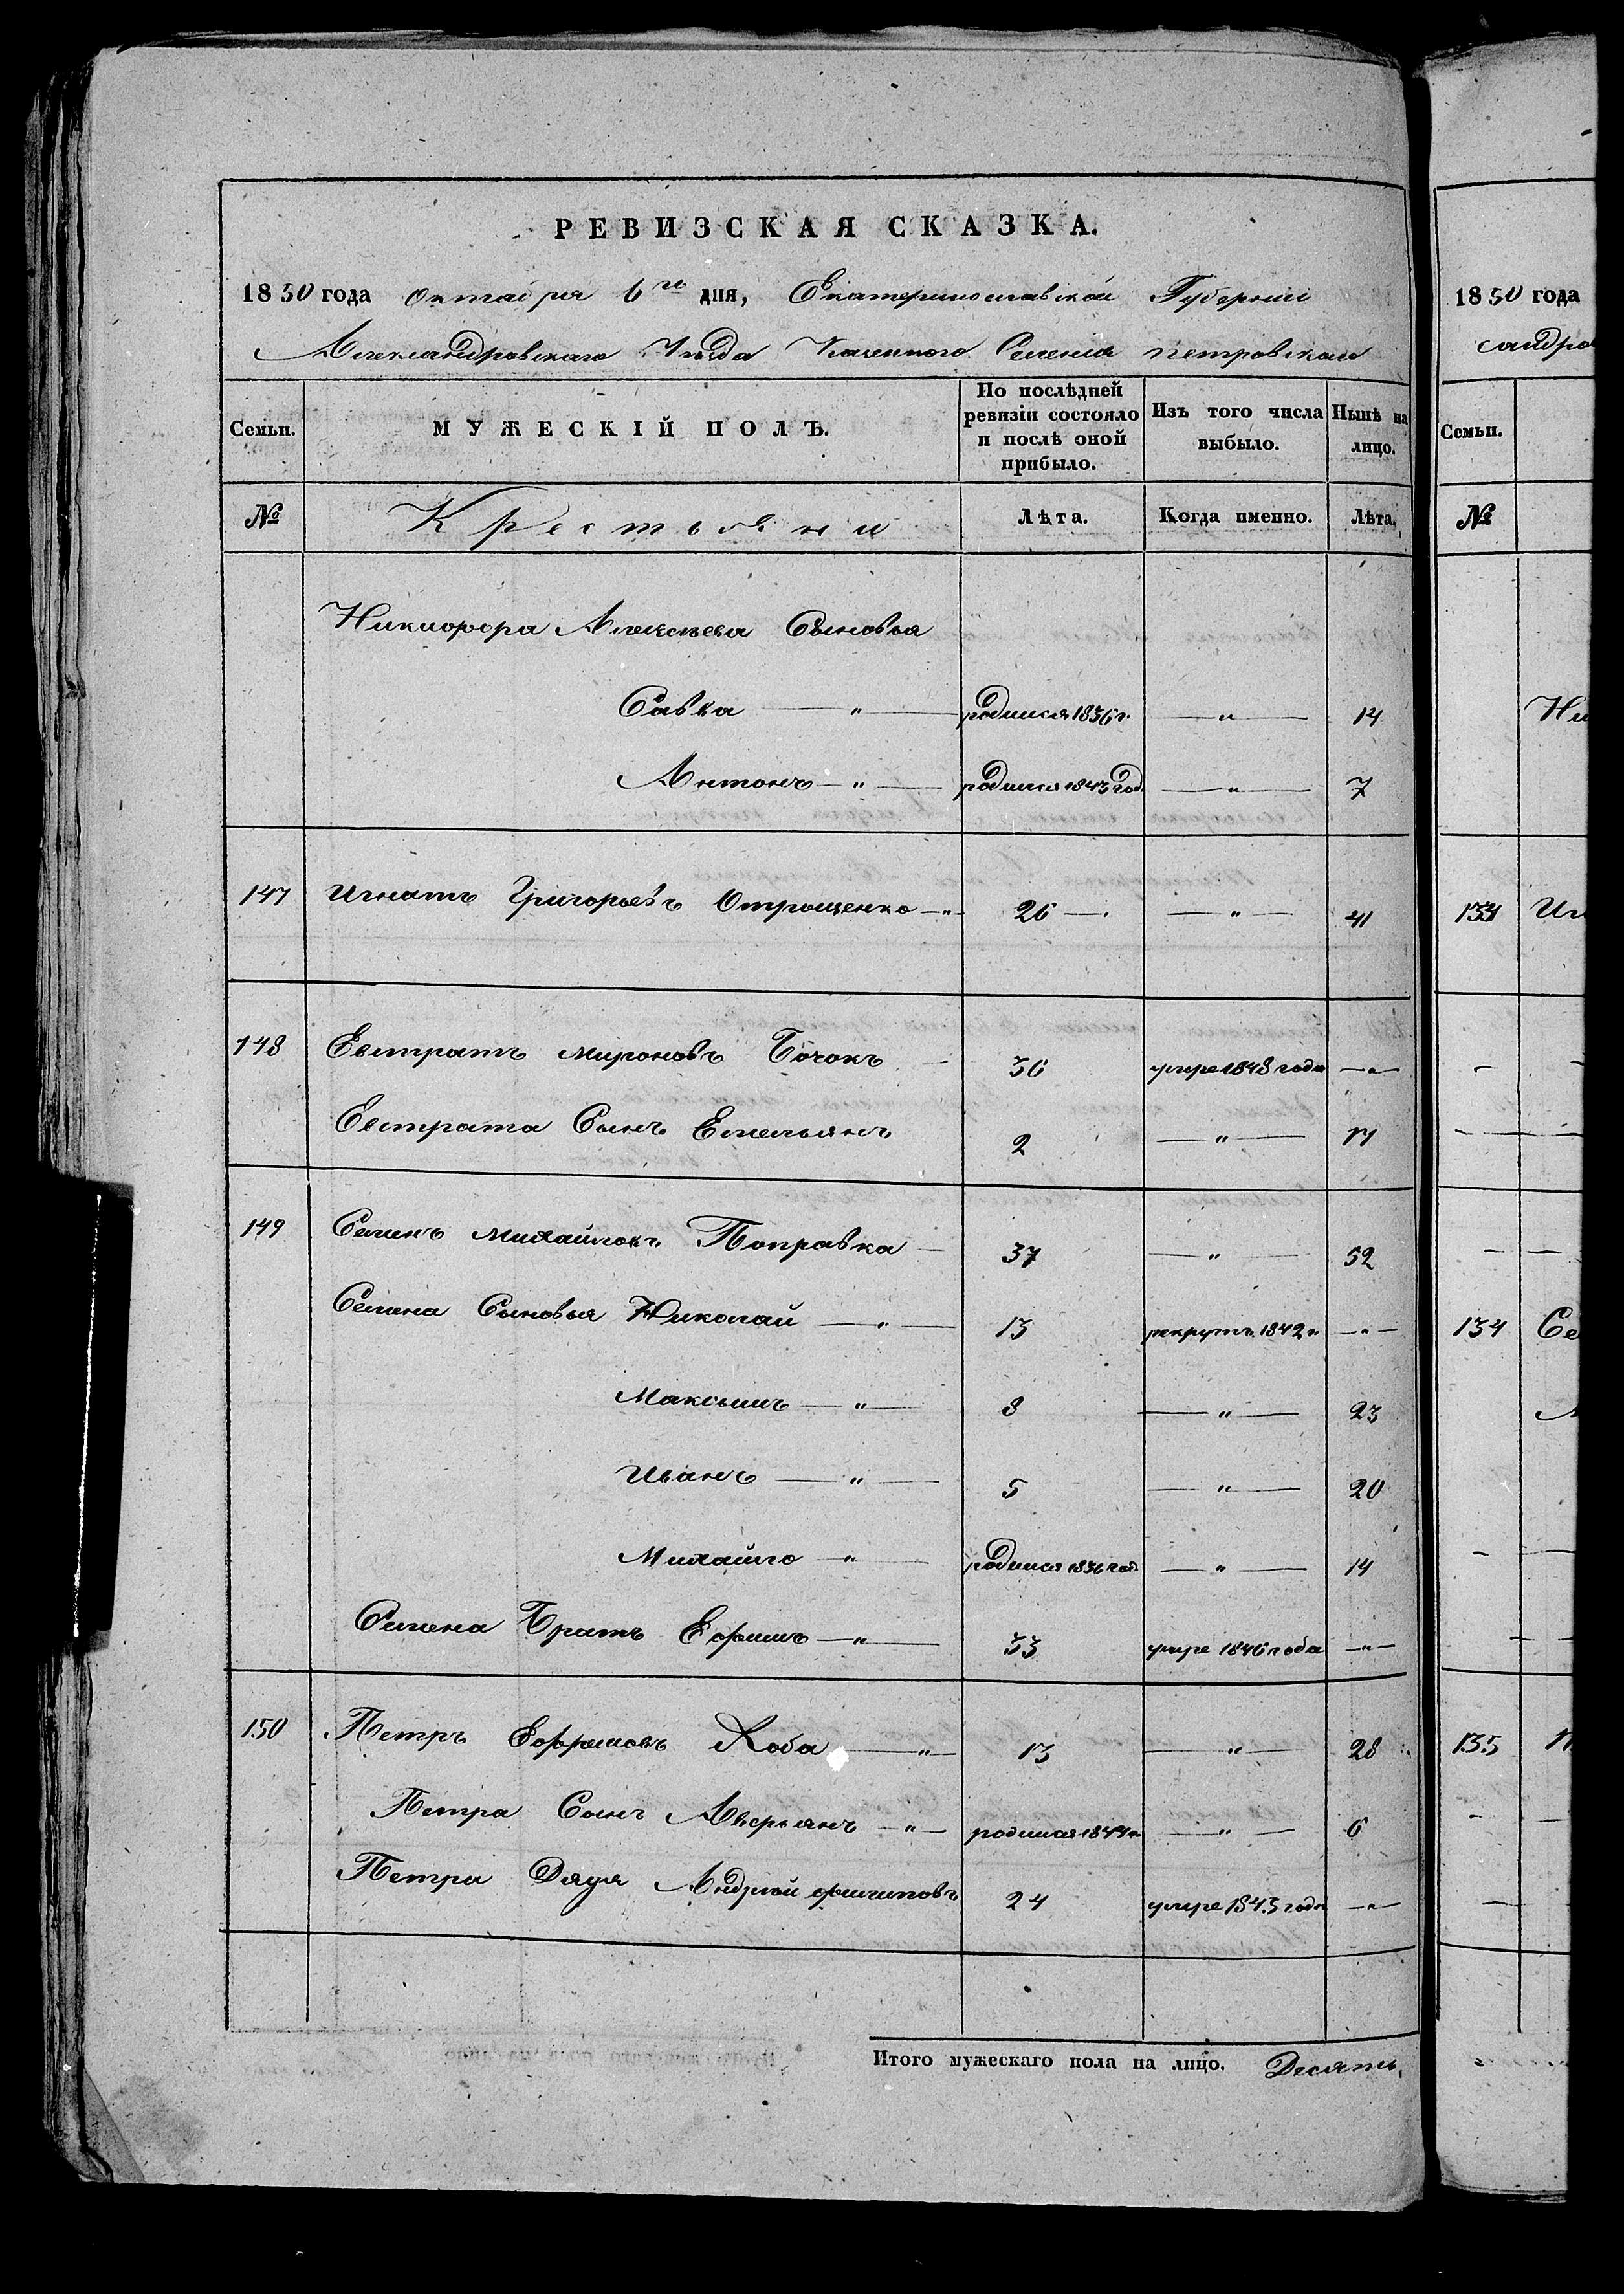 РЕВИЗСКАЯ СКАЗКА.
1850 года октября 6го дня, Екатеринославской Губернии
Александровскаго Уѣзда Казенного Селения петровскаго
Семьи. МУЖЕСКІЙ ПОЛЪ. По послѣдней ревизіи состояло и послѣ оной прибыло. Изъ того числа выбыло. Нынѣ на лицо.
№ Крестьяни Лѣта. Когда именно. Лѣта.
Никифора Алексѣева Сыновья
Савка — " — родился 1836 г. — " — 14
Антонъ — " — родился 1843 год. — " — 7
147 Игнатъ Григорьевъ Отрощенко — " — 26 — " — 41
148 Евстратъ мироновъ Бочокъ — 36 умре 1848 года — " —
Евстрата Сынъ Емельянъ 2 — " — 17
149 Семенъ михайловъ Поправка — 37 — " — 52
Семена Сыновья Николай — " — 13 рекрутъ 1842 г. — " —
Максимъ — " — 8 — " — 23
Иванъ — " — 5 — " — 20
Михайло — " — родился 1836 год. — " — 14
Семена Братъ Ефимъ — " — 33 умре 1846 года — " —
150 Петръ Ефимовъ Хоба — " — 13 — " — 28
Петра Сынъ Аверьянъ — " — родился 1844 г. — " — 6
Петра Дядя Андрѣй филиповъ 24 умре 1845 года — " —
Итого мужескаго пола на лицо. Десять.
1850 года
сандро
Семьи.
№
Ни
133 Иг
134 Се
135 П